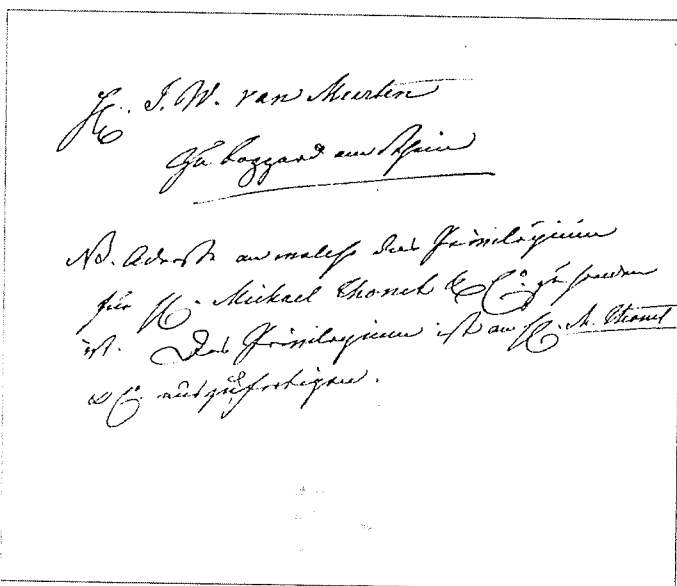 H. J. W. van Meerten
zu Boppard am Rhein
NB. Adresse an welche das Privilegium
für H. Michael Thonet & Co. zu senden
ist. Das Privilegium ist an H. M. Thonet
& Co. auszufertigen.